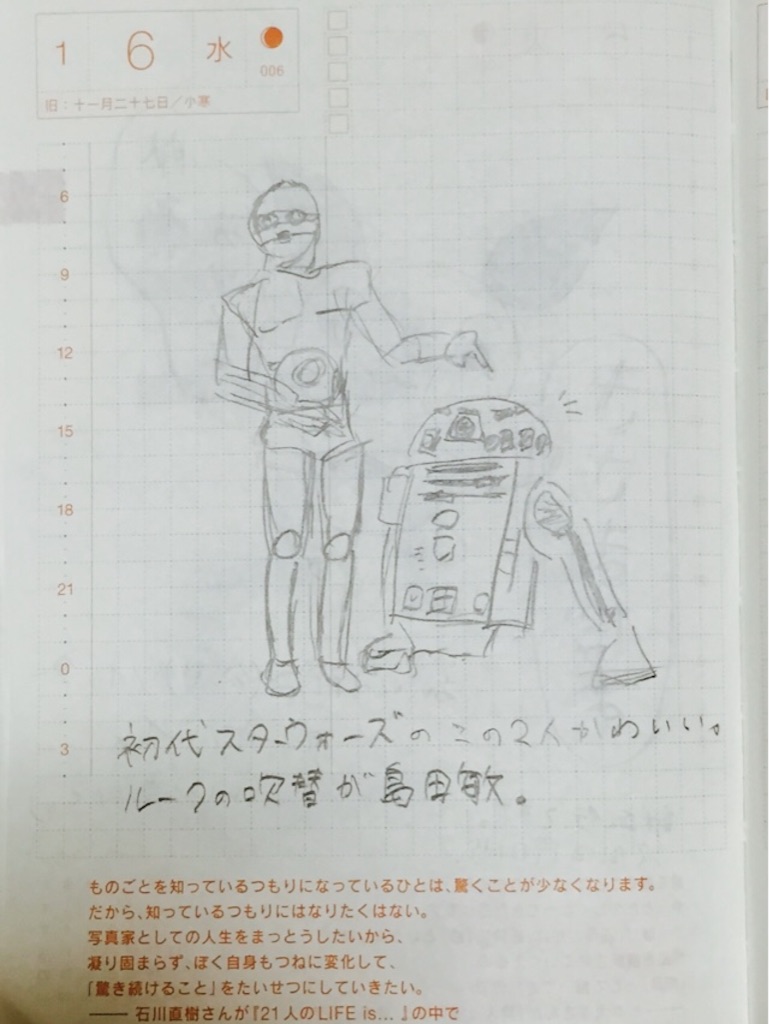 1 6 水
006
旧：十一月二十七日／小寒
6
9
12
15
18
21
0
3
初代スターウォーズのこの2人かわいい。
ルークの吹替が島田敏。
ものごとを知っているつもりになっているひとは、驚くことが少なくなります。
だから、知っているつもりにはなりたくはない。
写真家としての人生をまっとうしたいから、
凝り固まらず、ぼく自身もつねに変化して、
「驚き続けること」をたいせつにしていきたい。
—— 石川直樹さんが『21人のLIFE is... 』の中で